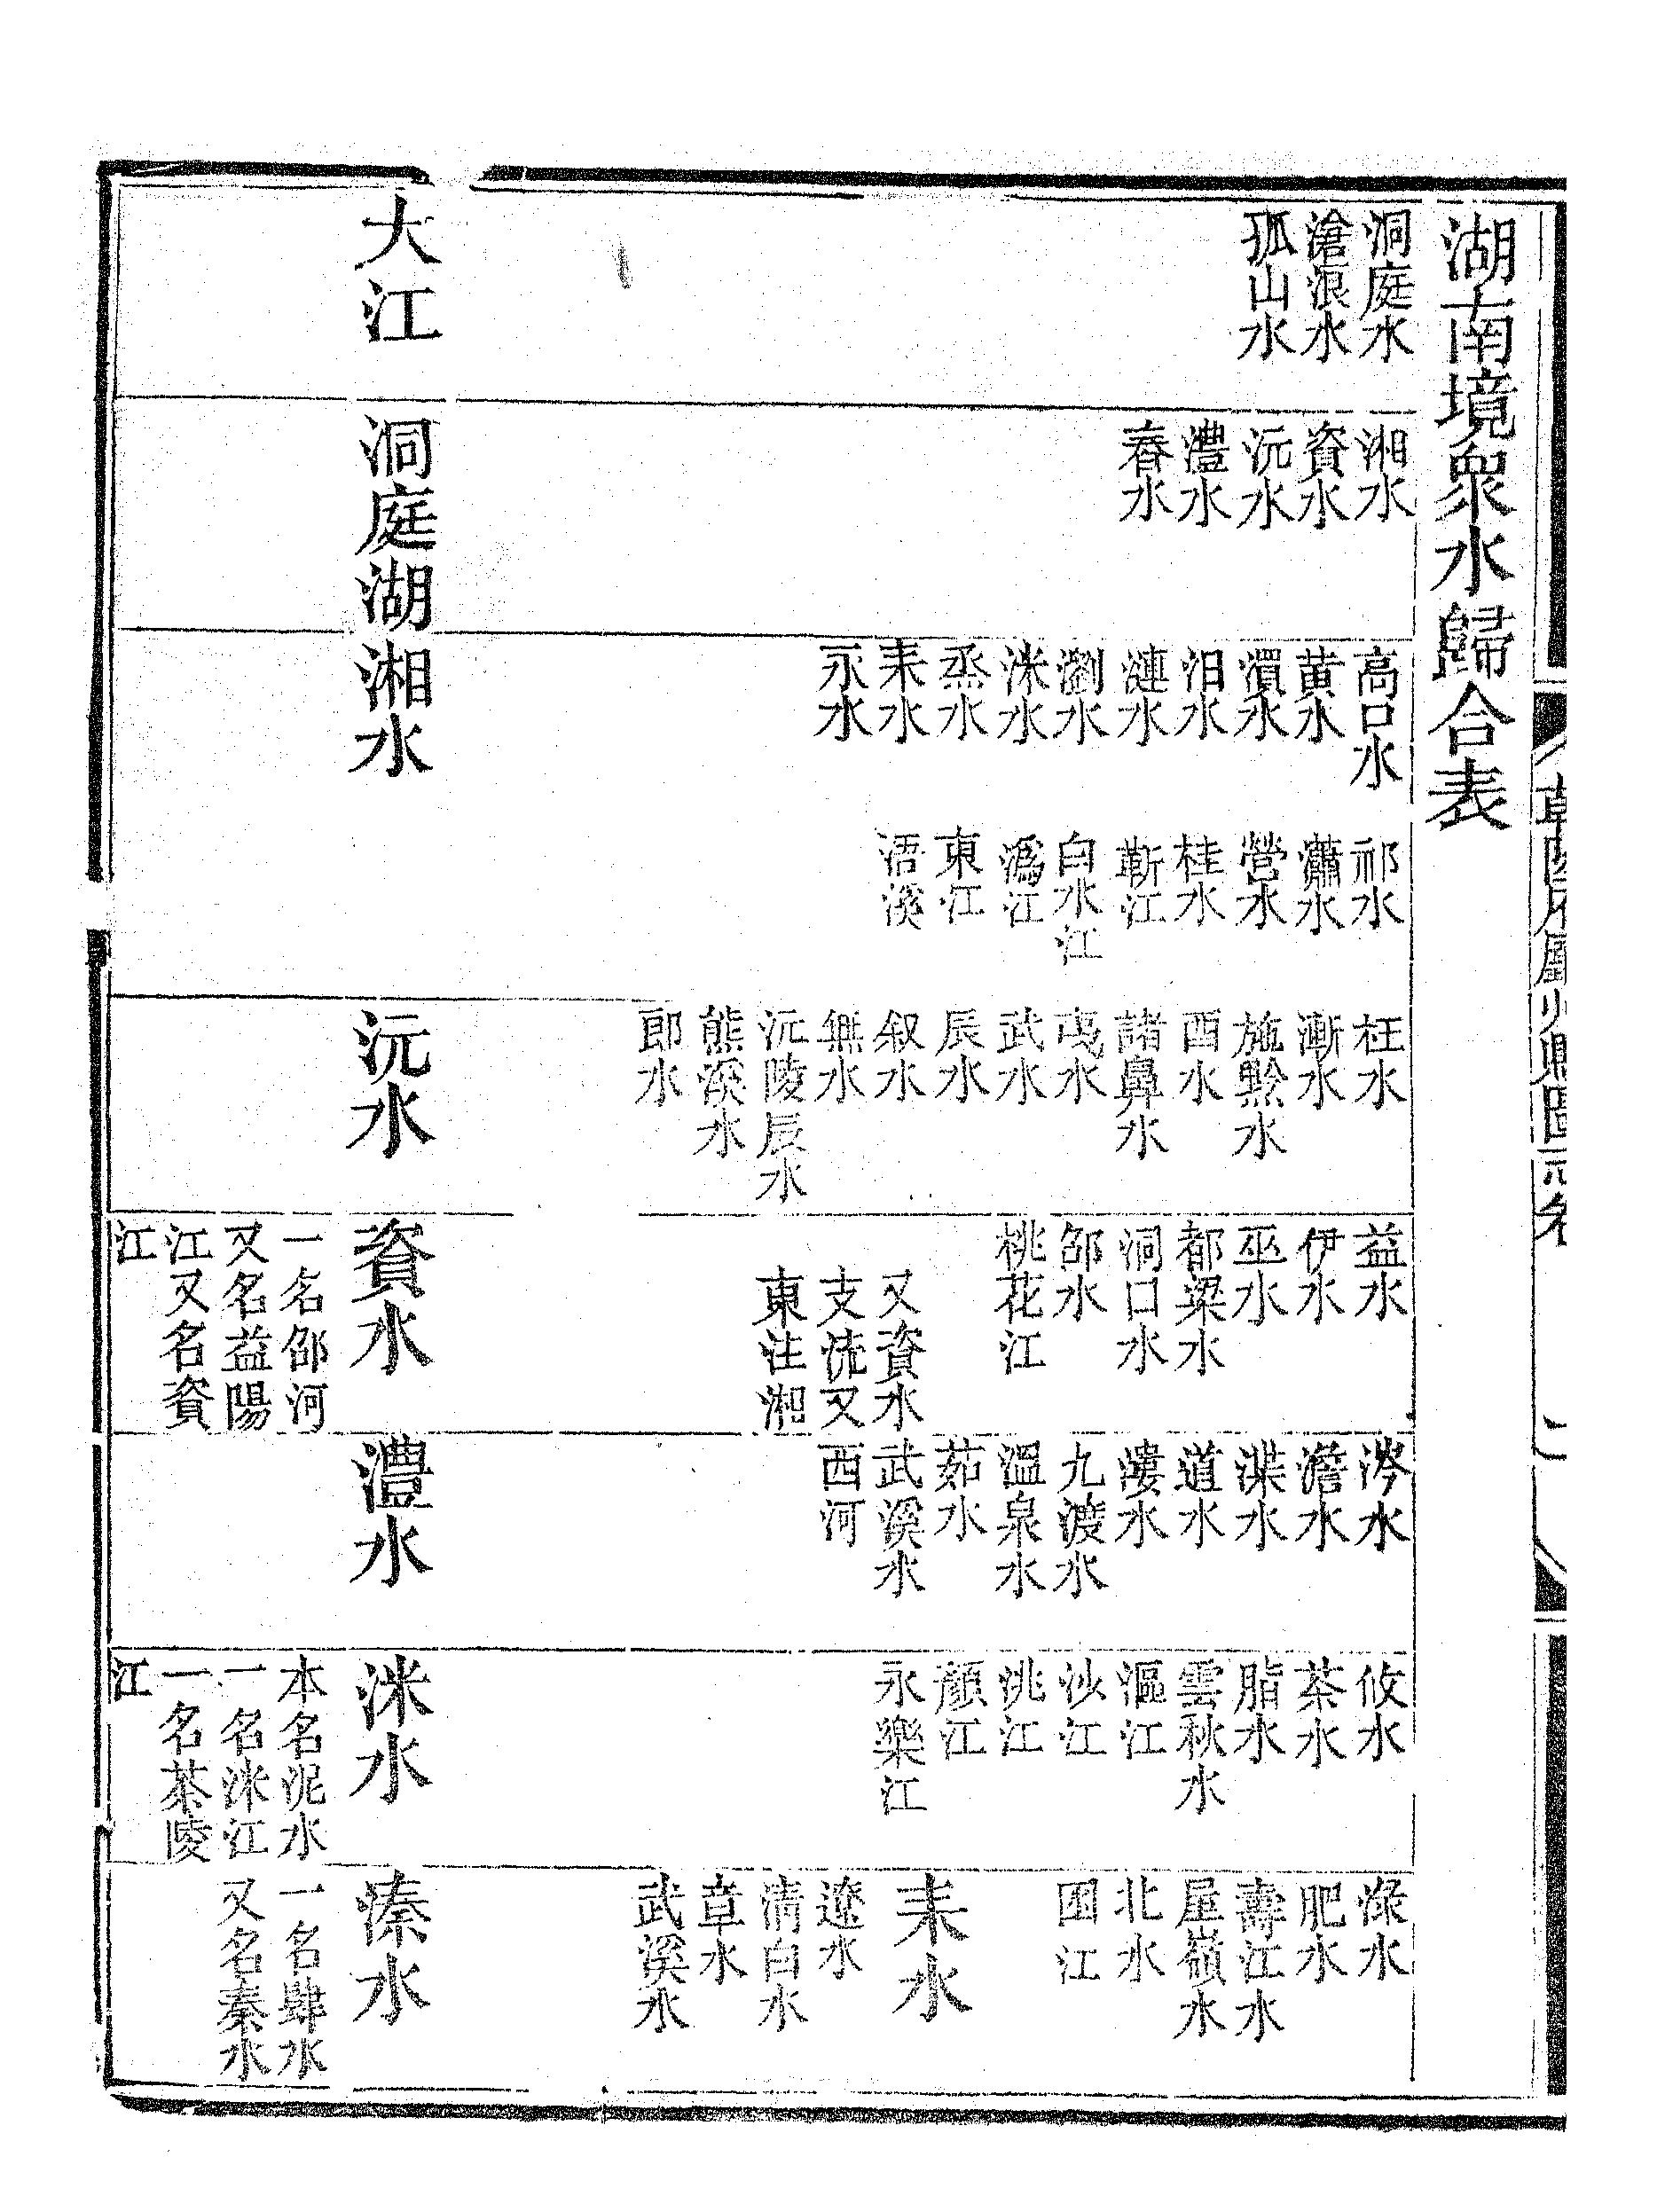 湖南境衆水歸合表
洞庭水
滄浪水
孤山水
大江
湘水
資水
沅水
澧水
春水
洞庭湖
高口水
黄水
溳水
汨水
漣水
瀏水
洣水
烝水
耒水
永水
祁水
瀟水
營水
桂水
蘄江
白水江
潙江
東江
浯溪
湘水
枉水
漸水
施黚水
酉水
諸鼻水
武水
辰水
叙水
無水
沅陵辰水
熊溪水
郎水
沅水
益水
伊水
巫水
都梁水
洞口水
邵水
桃花江
又資水
支流又
東注湘
資水
一名邵河
又名益陽
江又名資
江
涔水
澹水
渫水
道水
漊水
九渡水
溫泉水
茹水
武溪水
西河
澧水
攸水
茶水
脂水
雲秋水
漚江
沙江
洮江
顏江
永樂江
洣水
本名泥水
一名洣江
一名茶陵
江
淥水
肥水
壽江水
星嶺水
北水
囷江
耒水
遼水
清白水
章水
武溪水
溱水
一名肄水
又名秦水